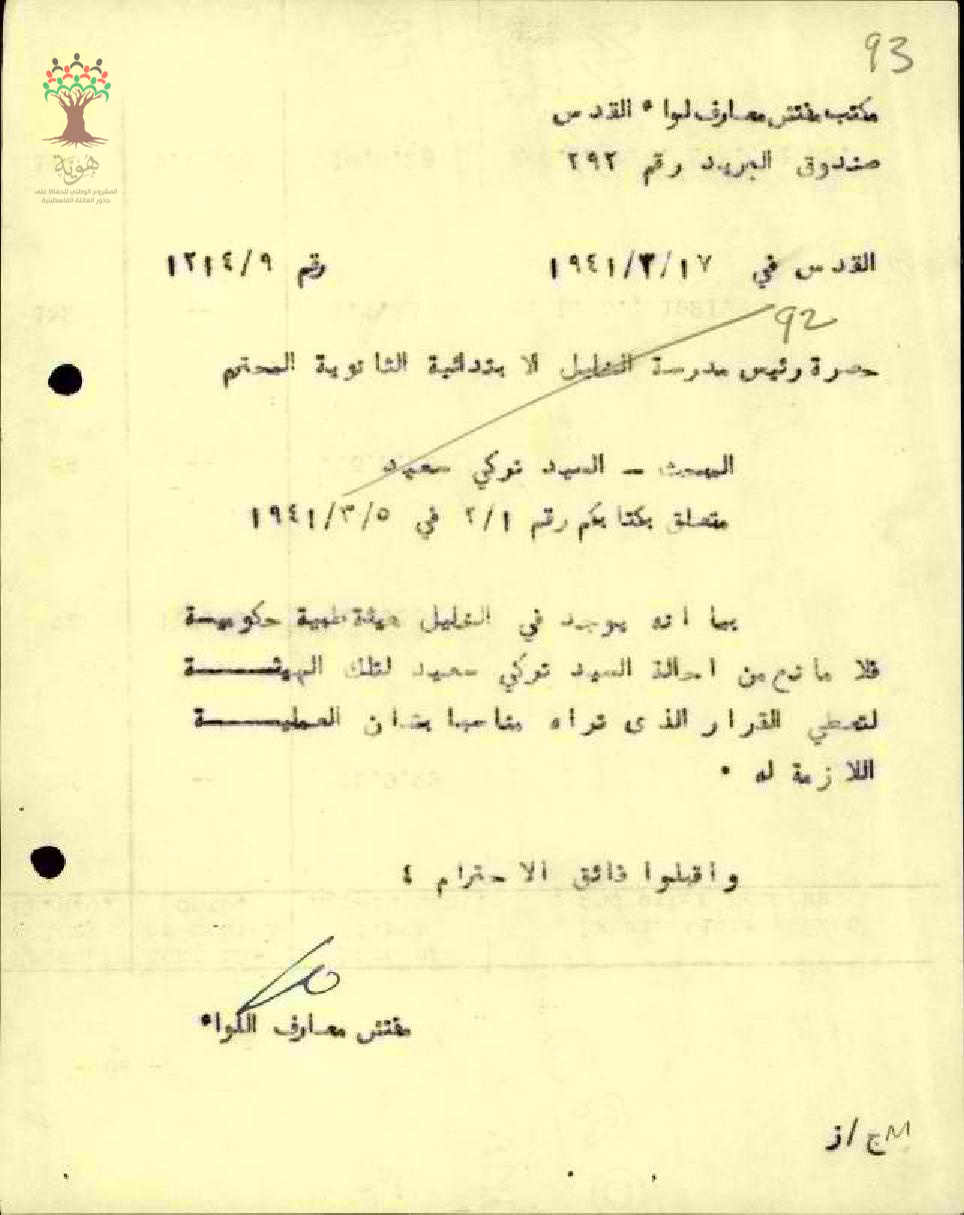 93
هوية
المشروع الوطني للحفاظ على
جذور العائلة الفلسطينية
مكتب مفتش معارف لواء القدس
صندوق البريد رقم ٢٩٢
القدس في ١٩٤١/٣/١٧ رقم ١٢١٤/٩
92
حضرة رئيس مدرسة الخليل الابتدائية الثانوية المحترم
البحث - السيد تركي سعيد
متعلق بكتابكم رقم ٢/١ في ١٩٤١/٣/٥
بما انه يوجد في الخليل هيئة طبية حكومية
فلا مانع من احالة السيد تركي سعيد لتلك الهيئـــــة
لتعطي القرار الذى تراه مناسبا بشان العمليـــــة
اللازمة له .
واقبلوا فائق الاحترام ،
مفتش معارف اللواء
ج/ز